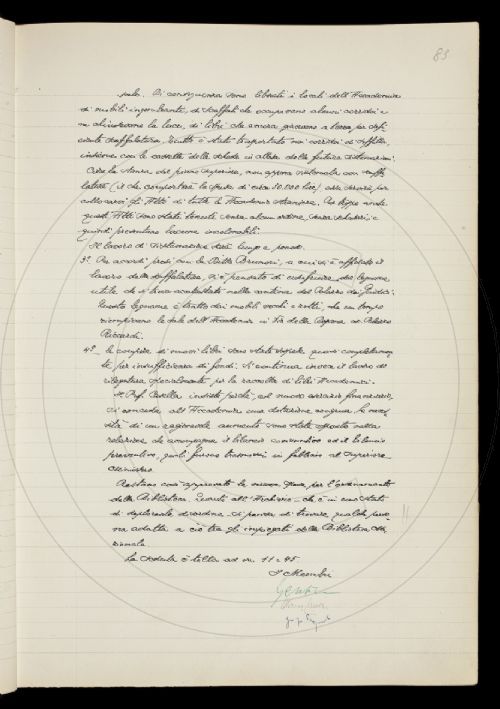 83
sala. Di conseguenza sono liberati i locali dell'Accademia
di mobili ingombranti, di scaffali che occupavano alcuni corridoi e
ne chiudevano la luce, di libri che ancora giacevano a terra per defi-
ciente scaffalatura. Tutto è stato trasportato nei corridoi a soffitta,
insieme con le cassette delle schede in attesa della futura sistemazione.
Circa la stanza del piano superiore, non appena sistemata con scaffa-
lature (il che comporterà la spesa di circa 50.000 lire) essa servirà per
collocarvi gli Atti di tutte le Accademie straniere. Per troppo tempo
questi Atti sono stati tenuti senza alcun ordine, senza schedari, e
quindi presentano lacune incolmabili.
Il lavoro di sistemazione sarà lungo e penoso.
3º Per accordi presi con la Ditta Brumori, a cui si è affidato il
lavoro della scaffalatura, si è pensato di usufruire del legname
utile che si trova accatastato nelle cantine del Palazzo dei Giudici.
Questo legname è tratto dai mobili vecchi e rotti, che un tempo
riempivano le sale dell'Accademia in Via della Pergola e Palazzo
Riccardi.
4º Le compere di nuovi libri sono state sospese quasi completamen-
te per insufficienza di fondi. Si continua invece il lavoro di
rilegatura, specialmente per la raccolta di libri Accademici.
Il Prof. insiste perchè, nel nuovo esercizio finanziario,
si conceda all'Accademia una dotazione congrua. Le neces-
sità di un ragionevole aumento sono state esposte nella
relazione che accompagna il bilancio consuntivo ed il bilancio
preventivo, quali furono trasmessi in febbraio al Superiore
Ministero.
Restano così approvate le nuove spese per l'ordinamento
della Biblioteca. Quanto all'Archivio - che è in uno stato
di deplorevole disordine - si pensa di trovare qualche perso-
na adatta a ciò tra gli impiegati della Biblioteca Na-
zionale.
La seduta è tolta ad ore 11 e 45.
I Membri